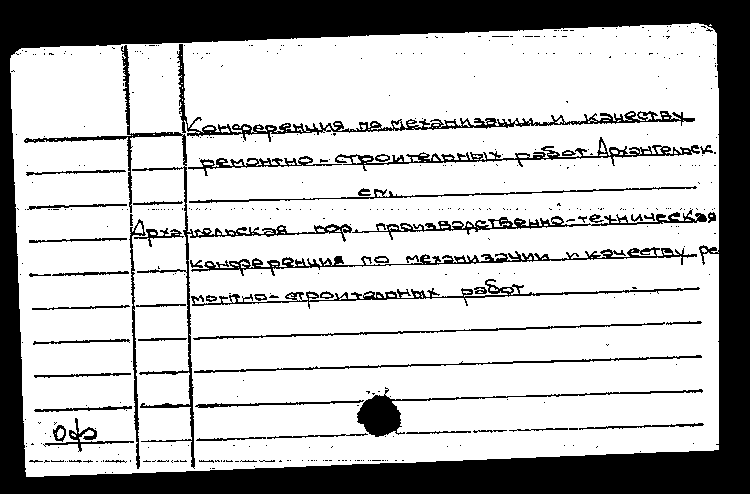 Конференция по механизации и качеству
ремонтно-строительных работ. Архангельск
см.
Архангельская гор. производственно-техническая
конференция по механизации и качеству ре
монтно-строительных работ.
оф